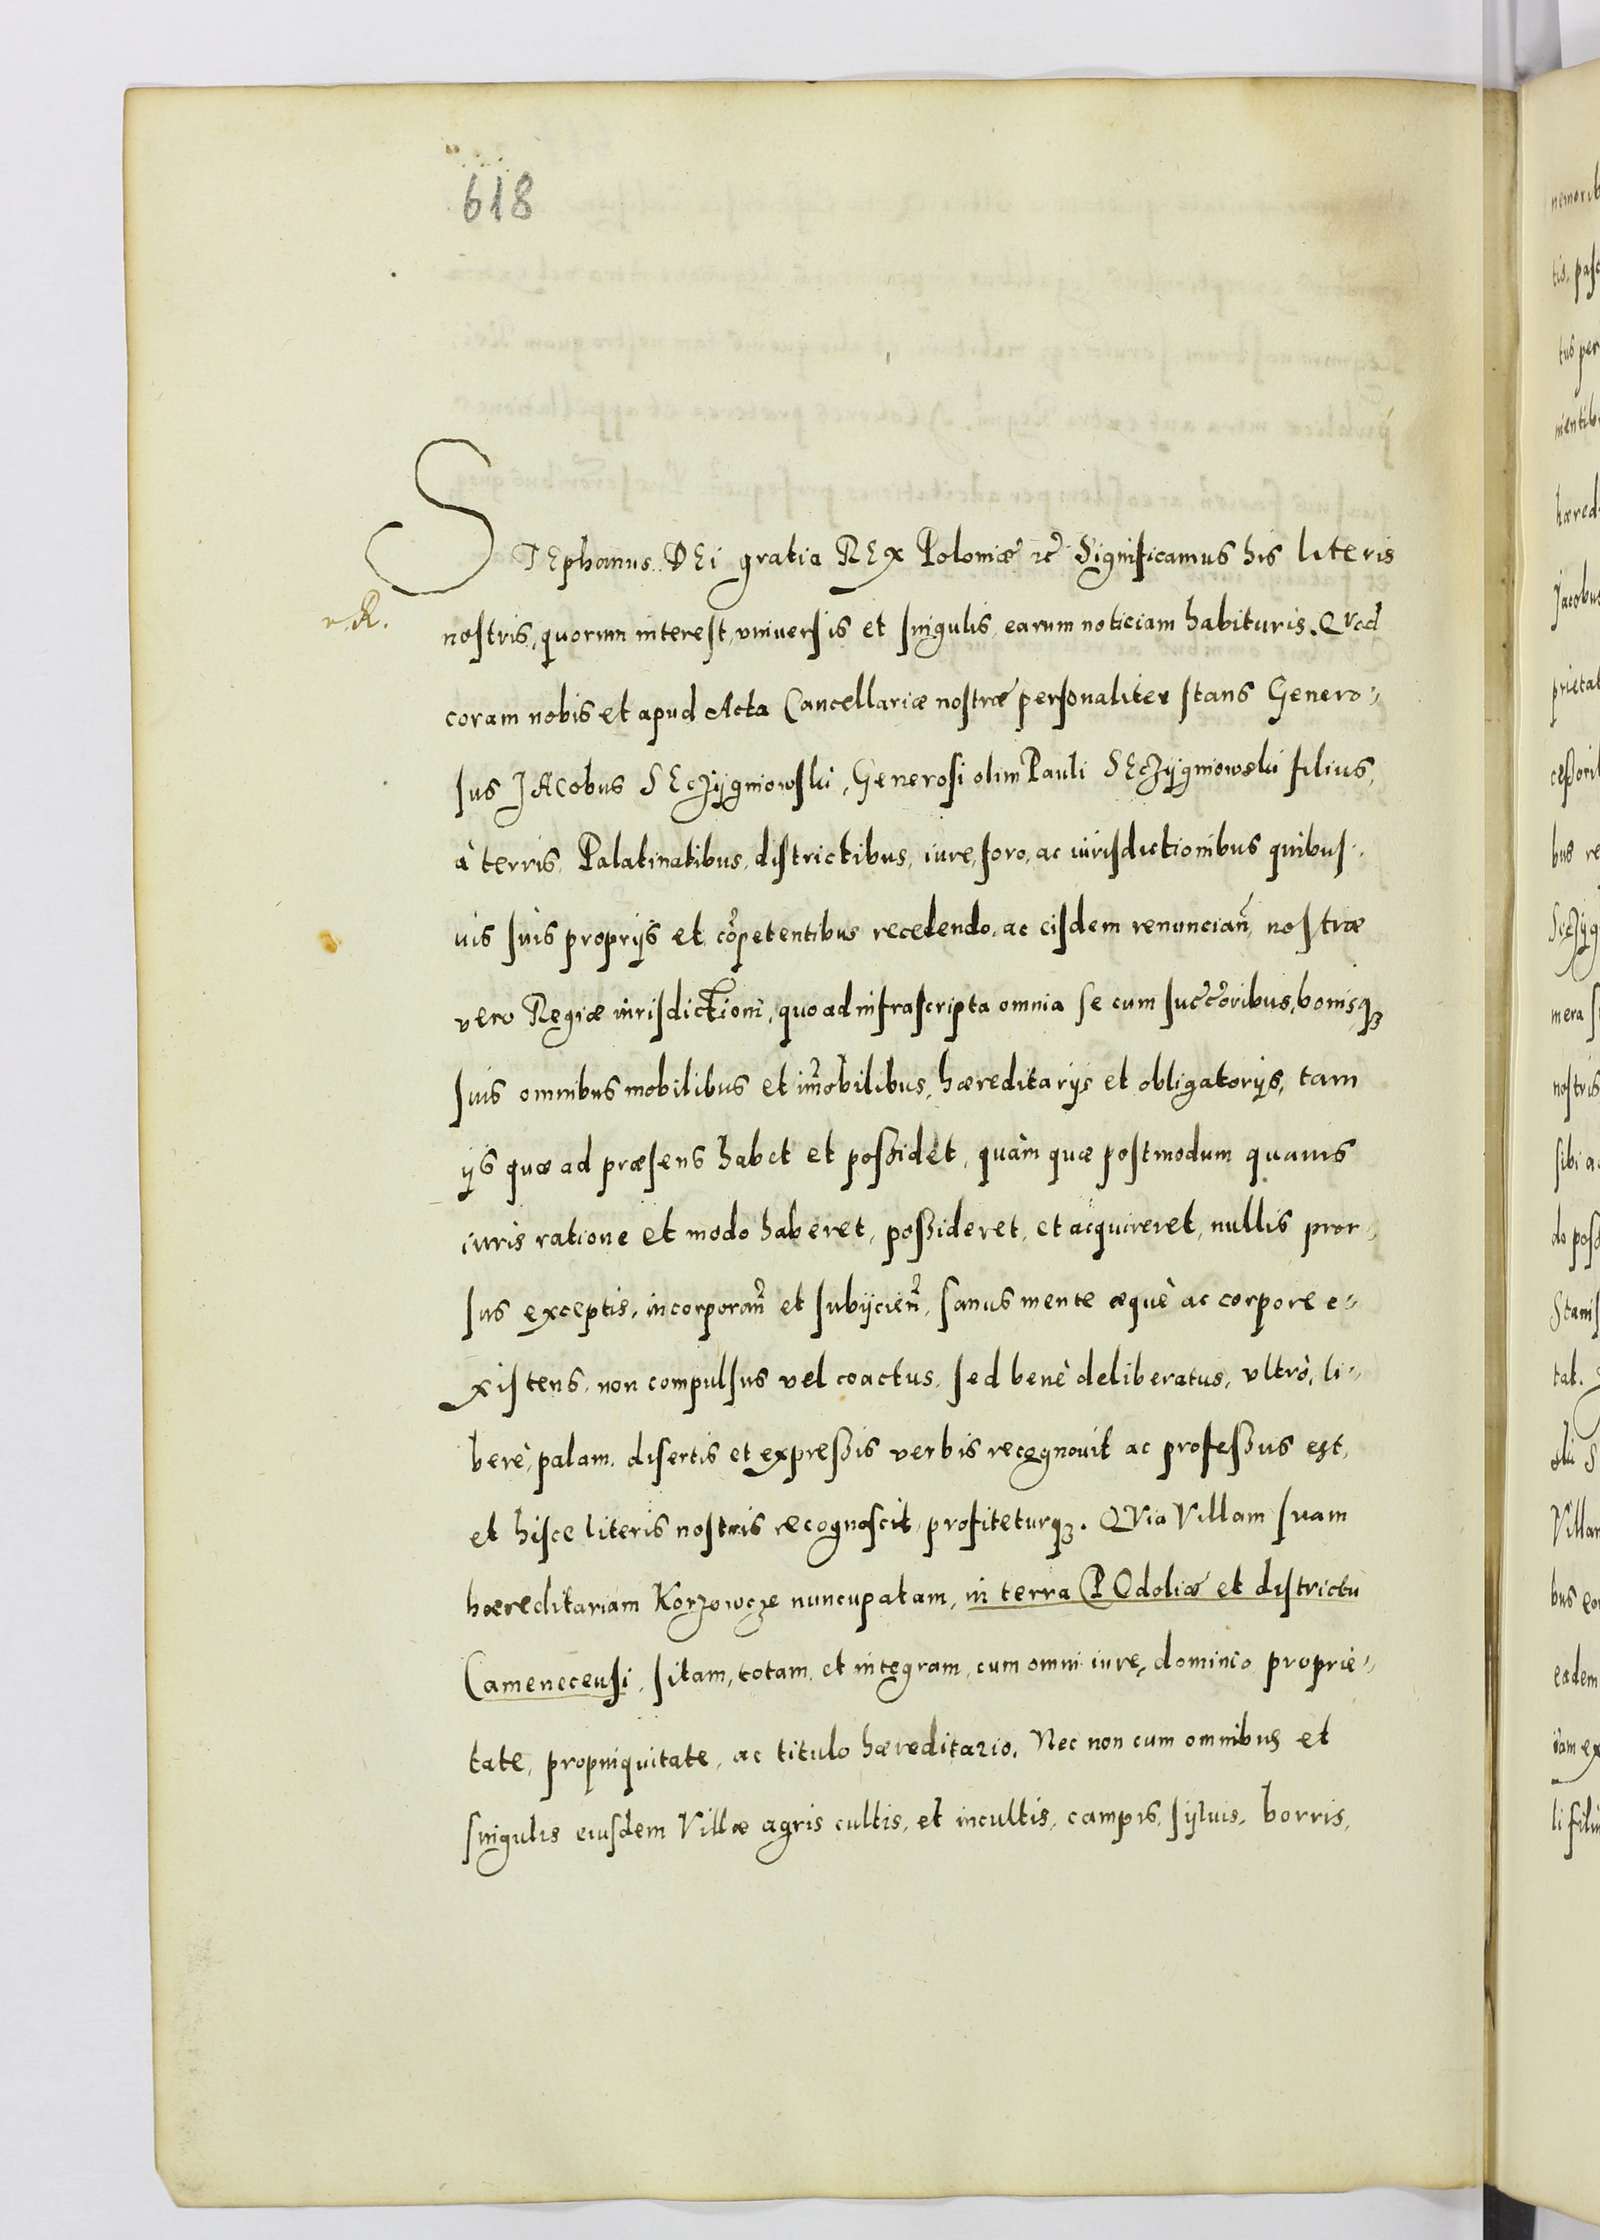 618
STEphanus DEi gratia REX Poloniæ &c̃ Significamus his literis
r. R.
nostris, quorum interest, vniuersis et singulis, earum noticiam habituris. Qvod
coram nobis et apud Acta Cancellariæ nostræ personaliter stans Genero-
sus JACobus SEczÿgniowski, Generosi olim Pauli SEczÿgniowski filius,
à terris, Palatinatibus, districtibus, iure, foro, ac iurisdictionibus quibus-
uis suis proprijs et cõpetentibus recedendo, ac eisdem renuncian̄, nostræ
vero Regiæ iurisdictioni, quo ad infrascripta omnia se cum succ̃oribus, bonisqꝫ
suis omnibus mobilibus et im̃obilibus, hæreditarijs et obligatorijs, tam
ijs quæ ad præsens habet et possidet, quàm quæ postmodum quauis
iuris ratione et modo haberet, possideret, et acquireret, nullis pror-
sus exceptis, incorporañ et subijcieñ, sanus mente æquè ac corpore e-
xistens, non compulsus vel coactus, sed benè deliberatus, vltrò, li-
berè, palam, disertis et expressis verbis recognouit ac professus est,
et hisce literis nostris recognoscit, profiteturqꝫ. QVia Villam suam
hæreditariam Korzowcze nuncupatam, in terra POdoliæ et districtu
Camenecensi, sitam, totam et integram, cum omni iure, dominio proprie-
tate, propinquitate, ac titulo hæreditario. Nec non cum omnibus et
singulis eiusdem Villæ agris cultis, et incultis, campis, sÿluis, borris,